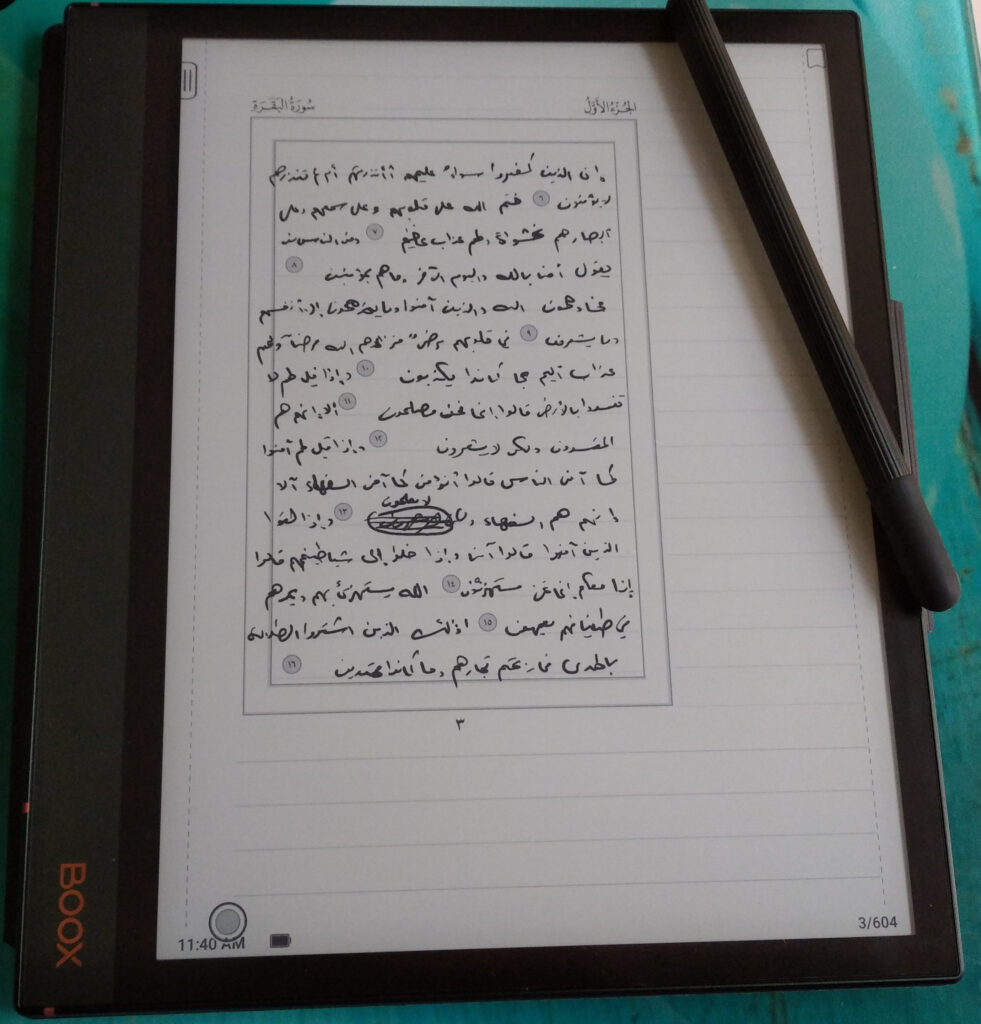 الجزء الأول
سورة البقرة
إن الذين كفروا سواء عليهم أأنذرتهم أم لم تنذرهم
لا يؤمنون ٦ ختم الله على قلوبهم وعلى سمعهم وعلى
أبصارهم غشاوة ولهم عذاب عظيم ٧ ومن الناس من
يقول آمنا بالله وباليوم الآخر وما هم بمؤمنين ٨
يخادعون الله والذين آمنوا وما يخدعون إلا أنفسهم
وما يشعرون ٩ في قلوبهم مرض فزادهم الله مرضا ولهم
عذاب أليم بما كانوا يكذبون ١٠ وإذا قيل لهم لا
تفسدوا بالأرض قالوا إنما نحن مصلحون ١١ ألا إنهم هم
المفسدون ولكن لا يشعرون ١٢ وإذا قيل لهم آمنوا
كما آمن الناس قالوا أنؤمن كما آمن السفهاء ألا
لا يعلمون
إنهم هم السفهاء ١٣ وإذا لقوا
الذين آمنوا قالوا آمنا وإذا خلوا إلى شياطينهم قالوا
إنا معكم إنما نحن مستهزئون ١٤ الله يستهزئ بهم ويمدهم
في طغيانهم يعمهون ١٥ أولئك الذين اشتروا الضلالة
بالهدى فما ربحت تجارتهم وما كانوا مهتدين ١٦
٣
3/604
11:40 AM
BOOX